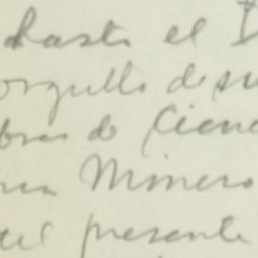 hasta el
orgullo de su
bras de Cienc
Minero
del presente